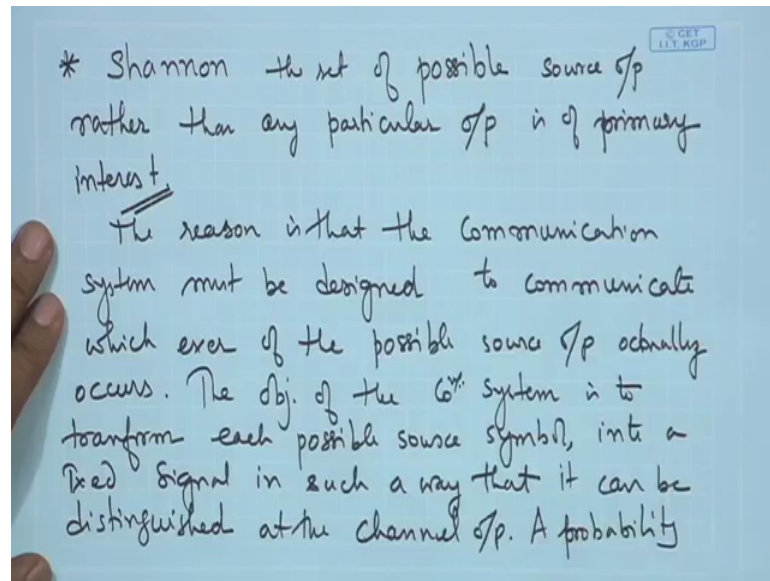 © CET
I.I.T. KGP
* Shannon the set of possible source o/p
rather than any particular o/p is of primary
interest.
The reason is that the communication
system must be designed to communicate
which ever of the possible source o/p actually
occurs. The obj. of the Co^n. system is to
tranform each possible source symbol, into a
Txed signal in such a way that it can be
distinguished at the channel o/p. A probability